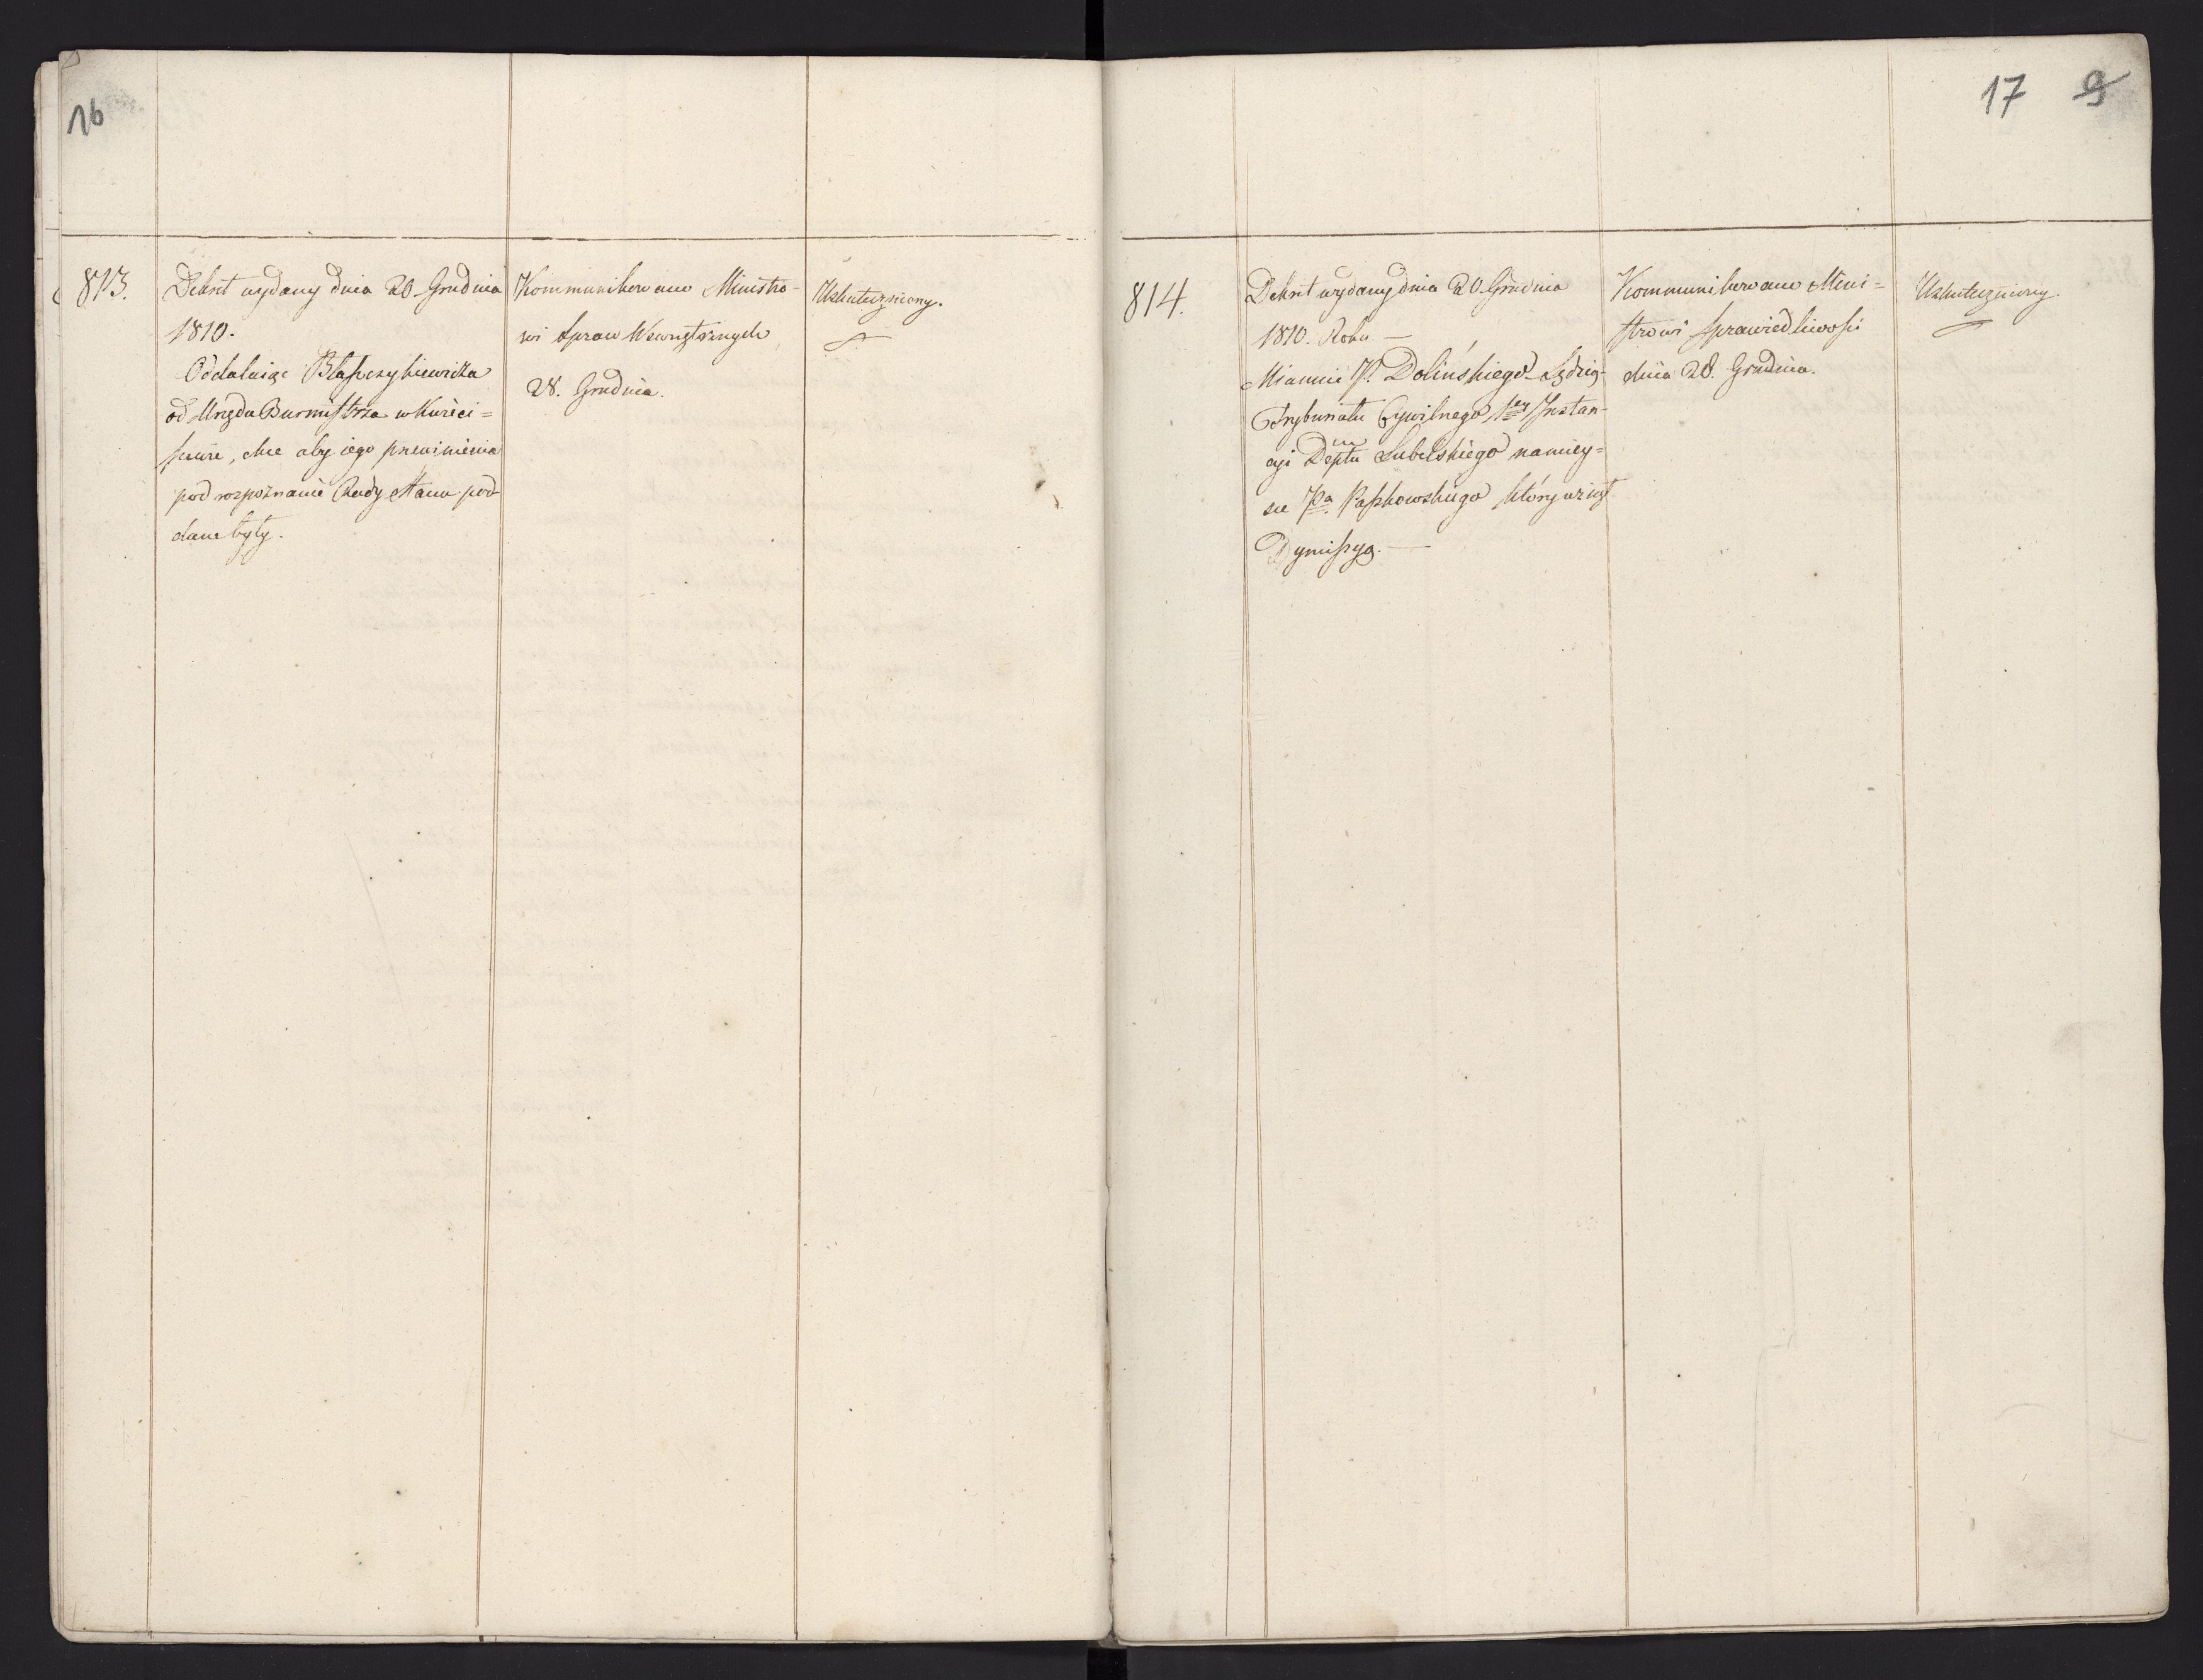 16
813.
Dekret wydany dnia 20 Grudnia
1810.
Oddalaiąc Błaszczykiewicza
od Urzędu Burmistrza w Kurże
chce aby iego przewinienia
pod rozpoznanie Rady Stanu pod-
dane były.
Kommunikowano Ministro-
wi Spraw Wewnętrznych
28. Grudnia.
Uskuteczniony.
17 9
814.
Dekret wydany dnia 20. Grudnia
1810. Roku —
Mianuie P. Dolinskiego Sędzią
Trybunału Cywilnego 1ey Instan-
cyi Deptu Lubelskiego na miey-
sce Pa. Paszkowskiego który wziął
Dymissyą. —
Kommunikowano Mini=
strowi Sprawiedliwości
dnia 28. Grudnia.
Uskuteczniony